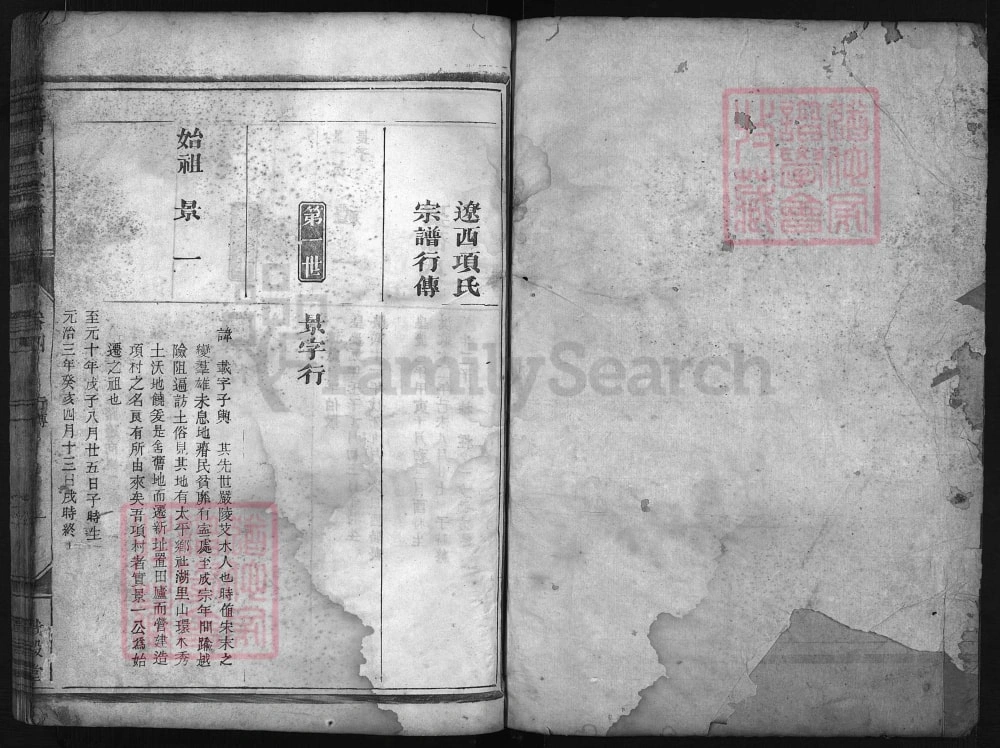 遼西項氏
宗譜行傳
第一世
景字行
始祖 景一
諱 載字子輿 其先世嚴陵艾水人也時值宋末之
變羣雄未息地瘠民貧靡有寧處至成宗年間踰越
險阻遍訪土俗見其地有太平鄉社湖里山環水秀
土沃地饒爰是舍舊地而遷新址置田廬而營建造
項村之名良有所由來矣吾項村者實景一公爲始
遷之祖也
至元十年戊子八月廿五日子時生
元治三年癸亥四月十三日戌時終
FamilySearch